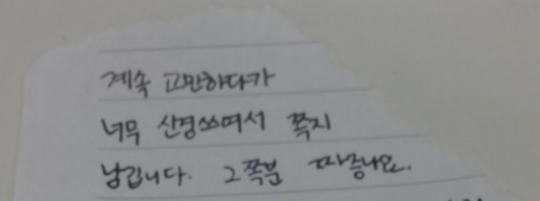 계속 고민하다가
너무 신경쓰여서 쪽지
남깁니다. 그쪽분 짜증나요.